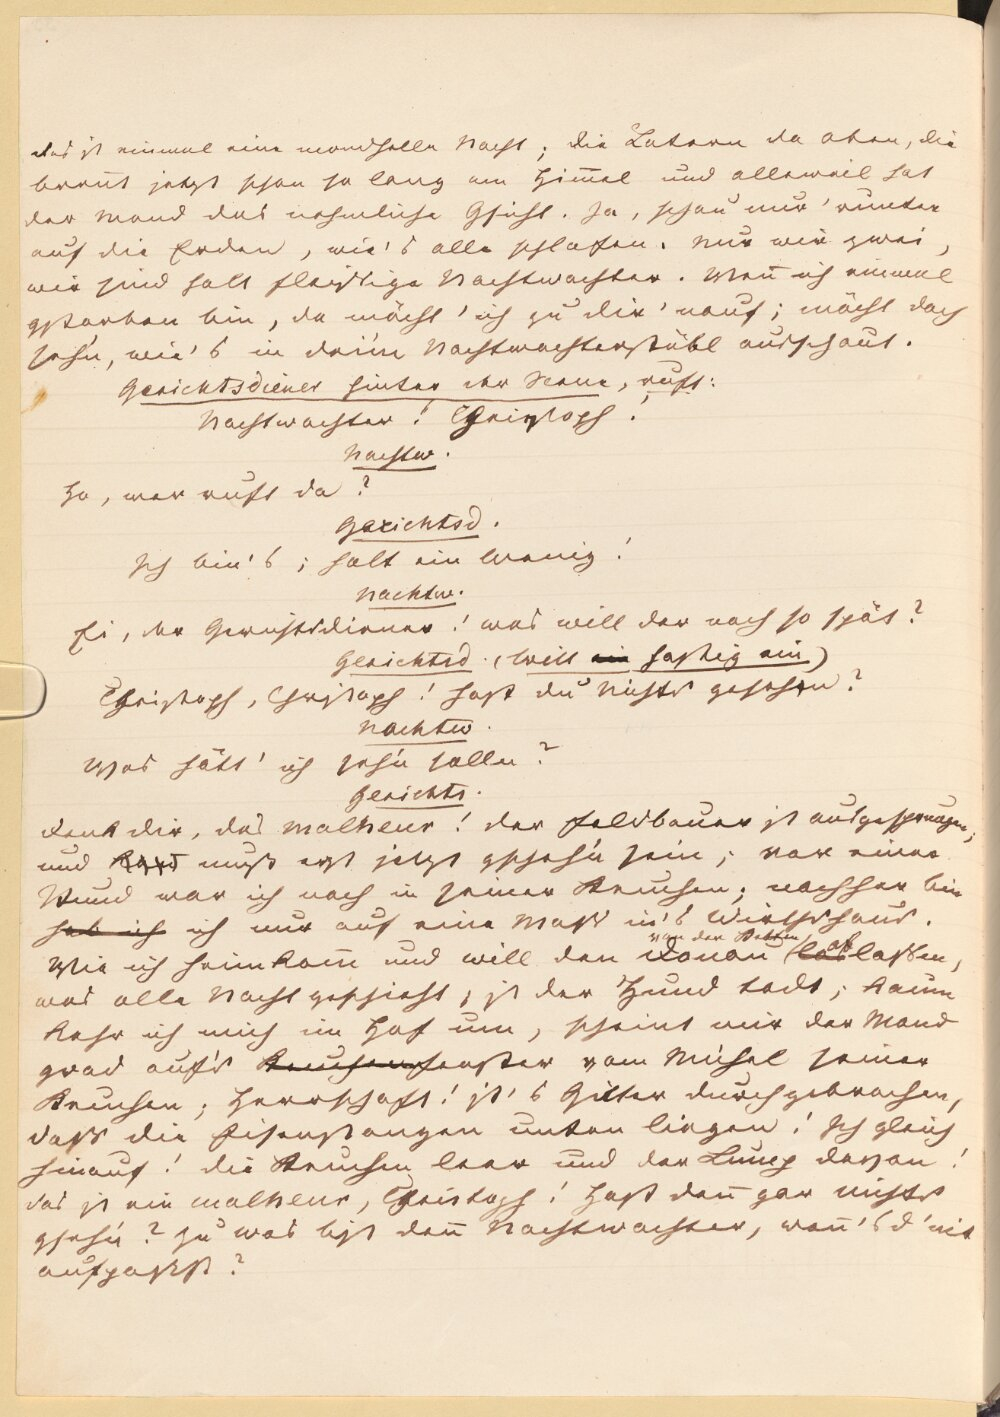 das ist einmal eine mondhelle Nacht; die Latern da oben, die
brennt jetzt schon so lang am Himmel und alleweil hat
der Mond das nehmliche Gsicht. Ja, schau nur 'runter
auf die Erden, wie's alle schlafen. Nur wir zwei,
wir sind halt fleißige Nachtwachter. Wenn ich einmal
gstorben bin, da möcht' ich zu dir 'nauf; möcht doch
seh'n, wie's in dein'm Nachtwachterstübl ausschaut.
Gerichtsdiener hinter der Scene, ruft:
Nachtwachter! Christoph!
Nachtw.
Ho, wer ruft da?
Gerichtsd.
Ich bin's; halt ein wenig!
Nachtw.
Ei, der Gerichtsdiener! was will der noch so spät?
Gerichtsd. (tritt ein hastig ein)
Christoph, Christoph! hast du nichts gesehen?
Nachtw.
Was hätt' ich seh'n sollen?
Gerichts.
Denk dir, das Malheur! der Feldbauer ist ausgesprungen,
und muß erst jetzt gscheh'n sein; vor einer
Stund war ich noch in seiner Keuchen; nachher bin
hab ich ich nur auf eine Maß in's Wirthshaus.
Wie ich heimkomm und will den Donau von der Ketten loslassen, ab
was alle Nacht geschieht, ist der Hund todt; kaum
kehr ich mich im Hof um, scheint mir der Mond
grad auf's Keuchenfenster vom Michel seiner
Keuchen; Herrschaft! ist's Gitter durchgebrochen,
daß die Eisenstangen unten liegen! Ich gleich
hinauf! die Keuchen leer und der Lump davon!
das ist ein Malheur, Christoph! Hast denn gar nichts
gseh'n? Zu was bist denn Nachtwachter, wenn's d' nit
aufpaßst?